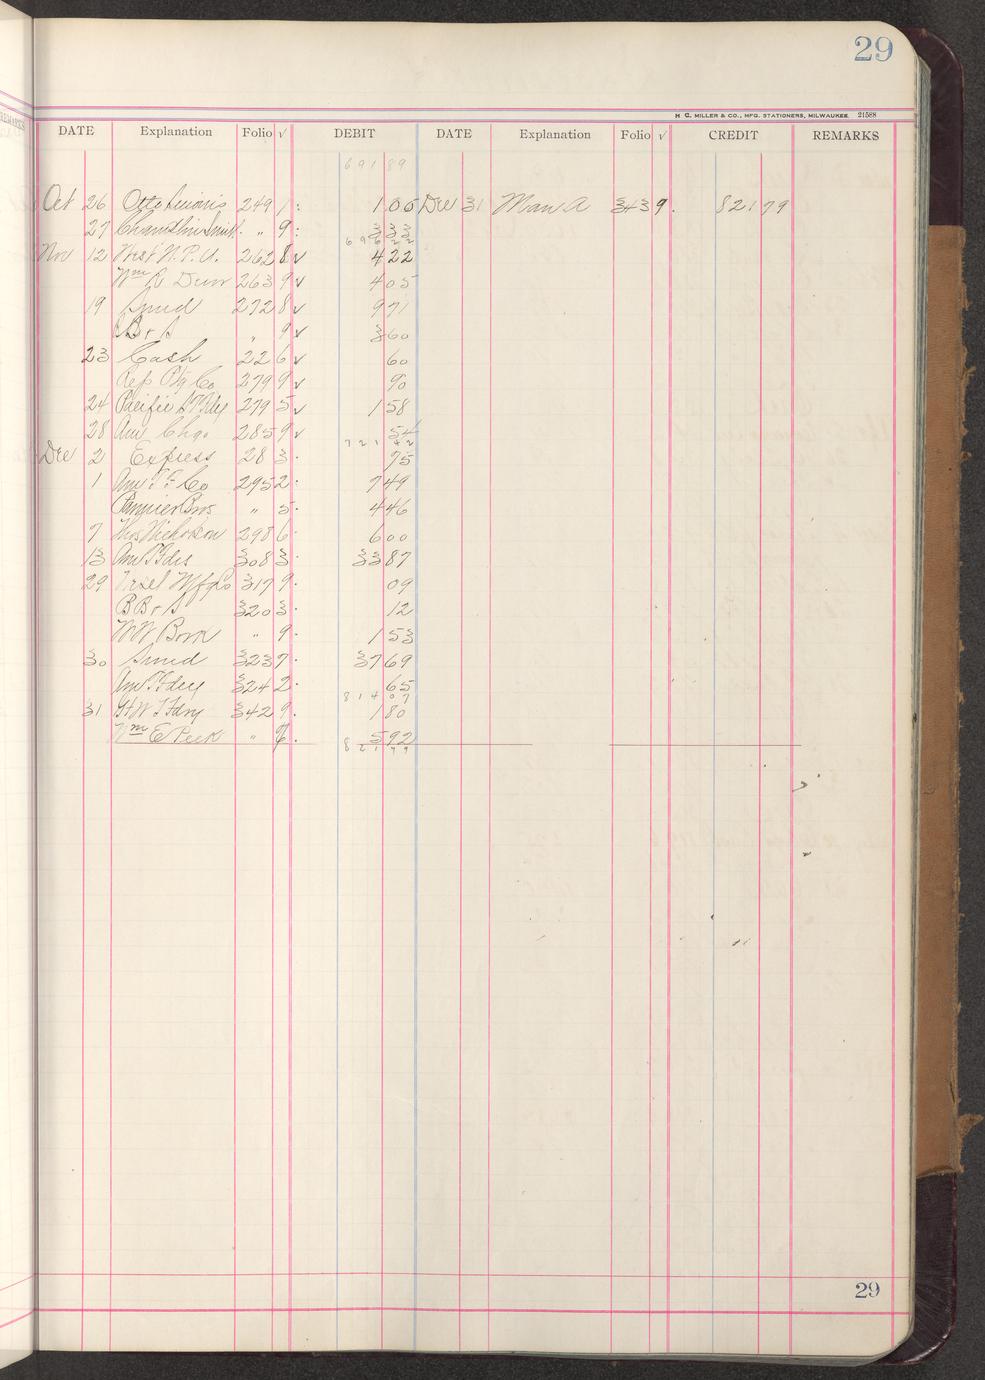 29
REMARKS
H. G. MILLER & CO., MFG. STATIONERS, MILWAUKEE. 21588
DATE Explanation Folio √ DEBIT DATE Explanation Folio √ CREDIT REMARKS
691 89
Oct 26 Otto 249 1 1 00 Dec 31 Man a 343 9 821 79
27 " 9 3 33
696 22
Nov 12 West N. P. U. 262 8 √ 4 22
Wm R Dunn 263 9 √ 4 05
19 Smid 272 8 √ 9 71
B r S " 9 √ 3 60
23 Cash 22 6 √ 60
Rep Ptg Co 279 9 √ 90
24 Pacific 279 5 √ 1 58
28 Am Chgo 285 9 √ 54
721 42
Dec 2 Express 28 3 75
1 Am T F Co 295 2 7 49
Pannier Bros " 5 4 46
7 Thos Nicholson 298 6 6 00
13 Am T Fdrs 308 3 33 87
29 Mfg Co 317 9 09
B B r S 320 3 12
W W Bork " 9 1 53
30 Smid 323 7 37 69
Am T Fdry 324 2 65
814 07
31 Gt W T Fdry 342 9 1 80
Wm E Peck " 6 5 92
821 79
29